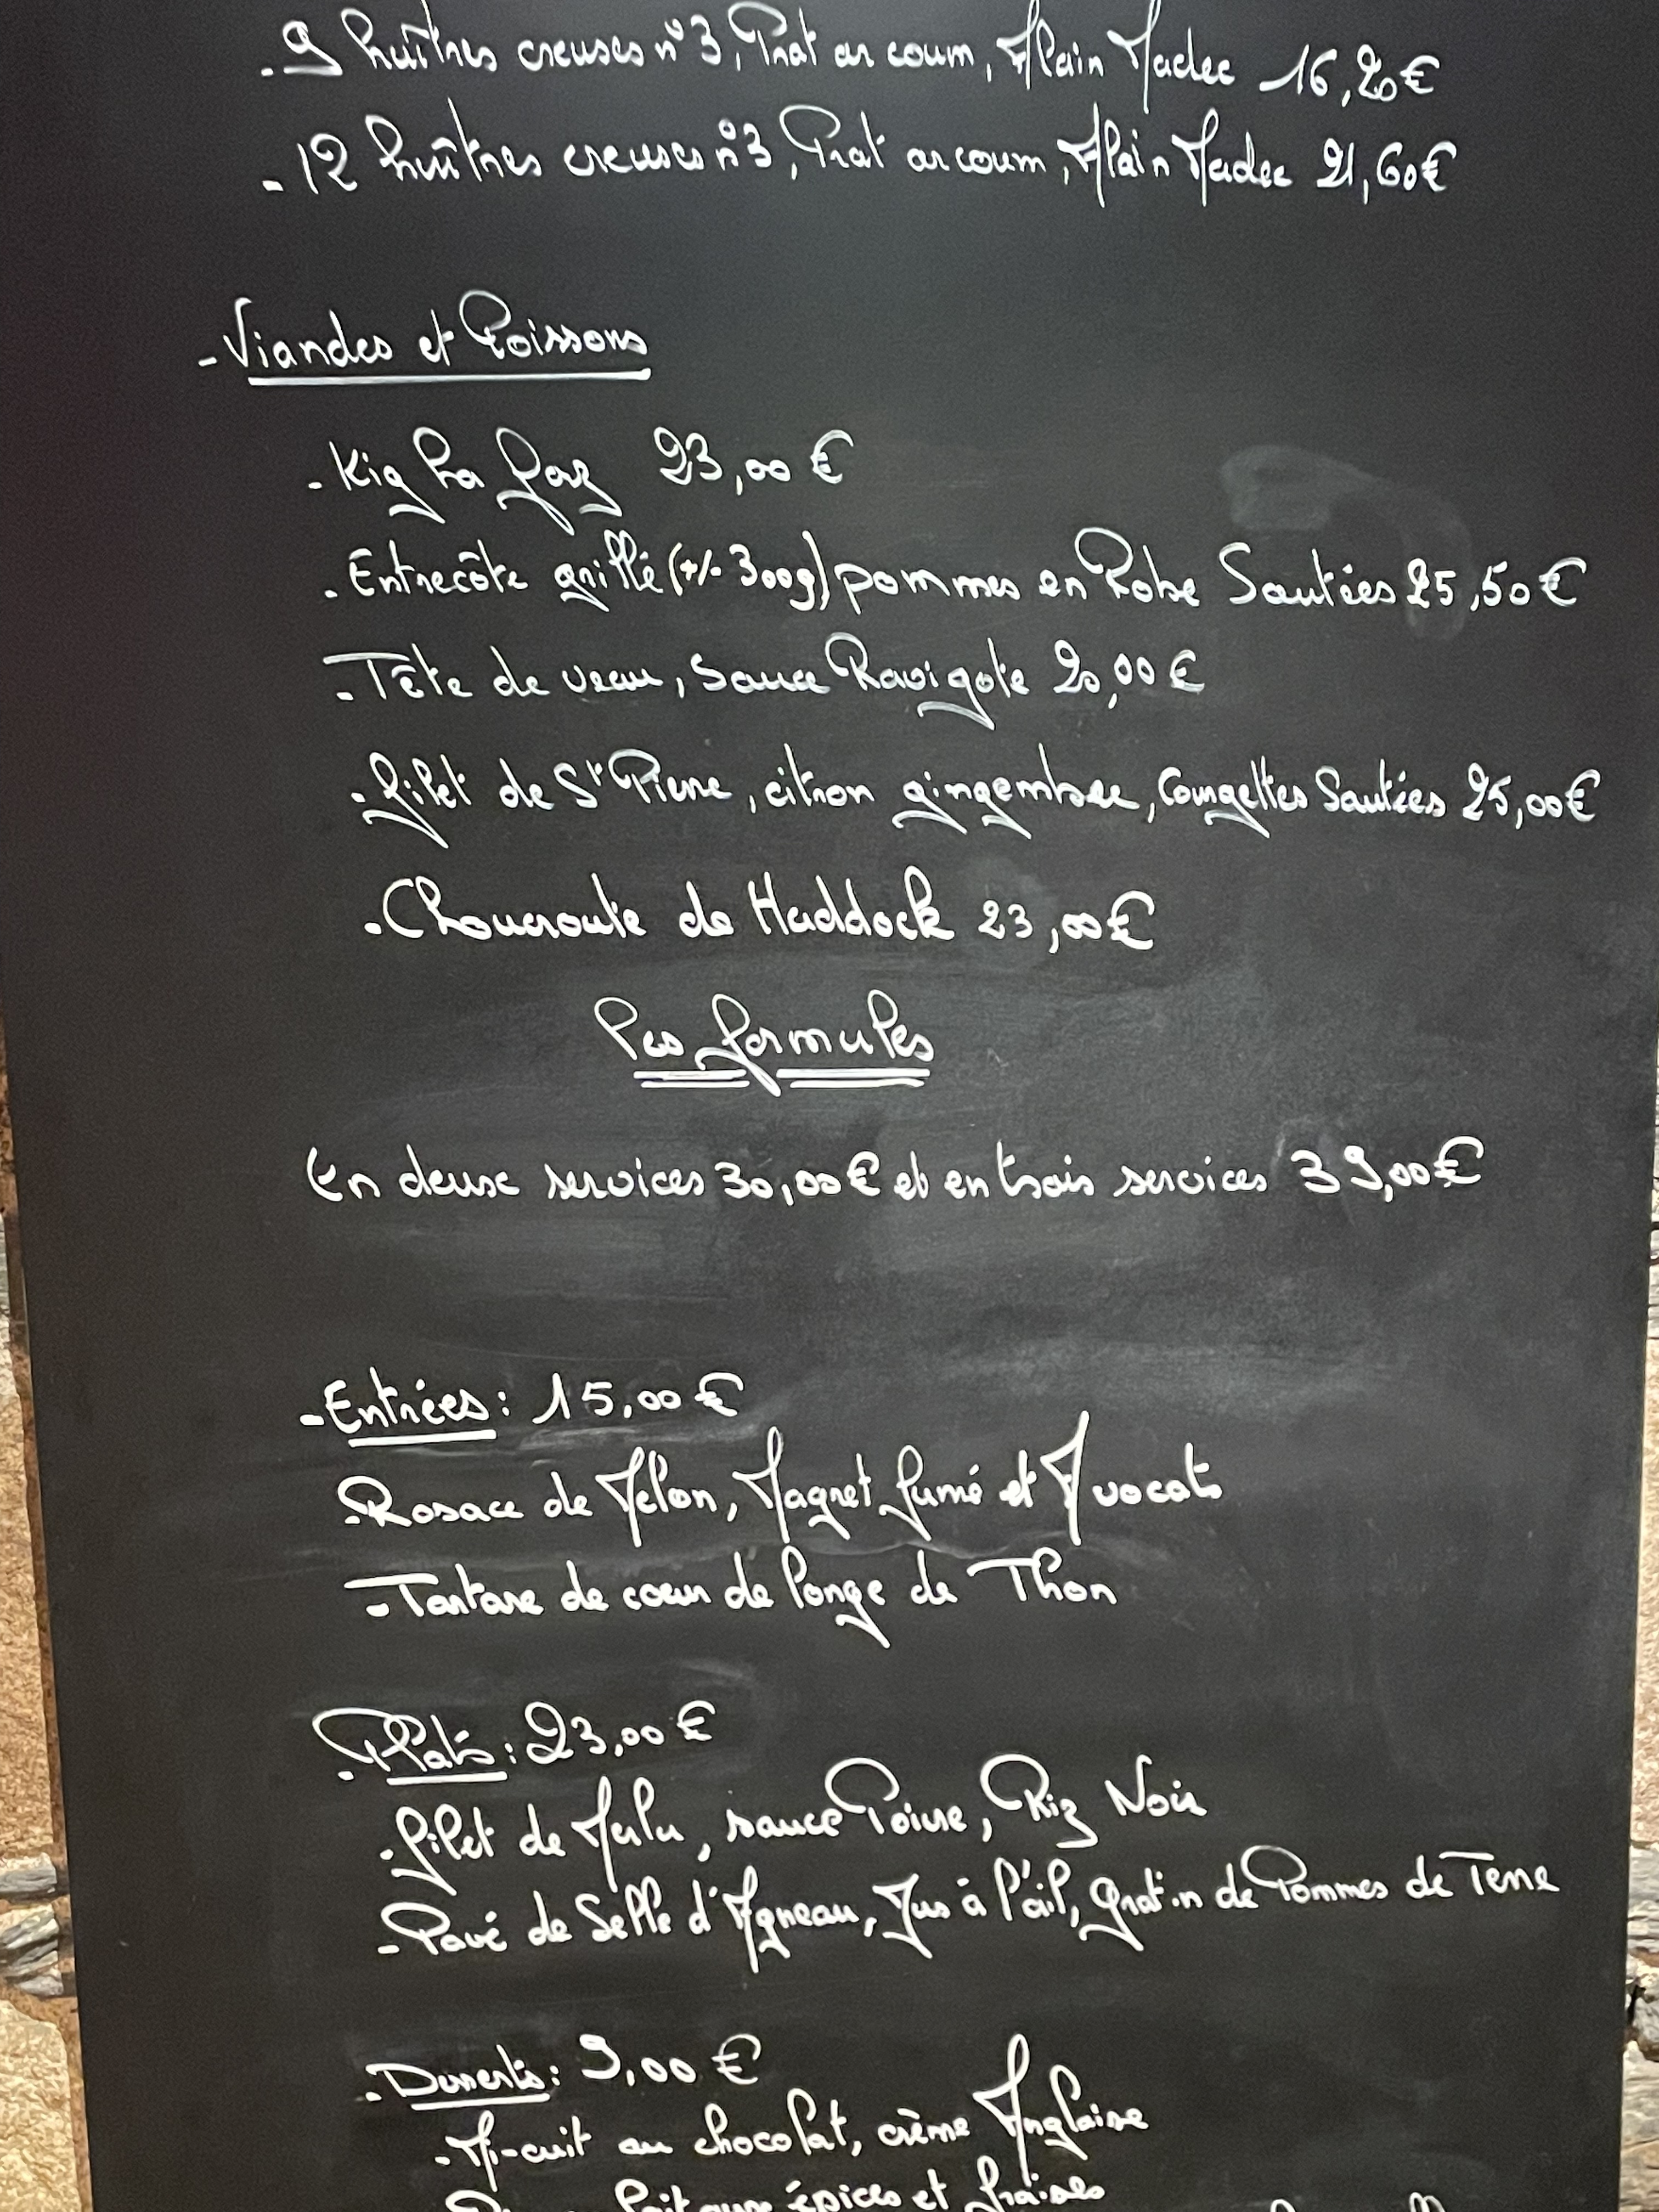 . 9 huîtres creuses n°3, Prat ar coum, Alain Madec 16,20€
- 12 huîtres creuses n°3, Prat ar coum, Alain Madec 21,60€
- Viandes et Poissons
. Kig ha farz 23,00 €
. Entrecôte grillé (+/- 300g) pommes en Robe Sautées 25,50€
- Tête de veau, Sauce Ravigote 20,00 €
. filet de St Pierre, citron gingembre, Courgettes Sautées 25,00€
. Choucroute de Haddock 23,00€
Les formules
En deux services 30,00€ et en trois services 39,00€
- Entrées : 15,00 €
. Rosace de Melon, Magret fumé et Avocats
- Tartare de cœur de longe de Thon
. Plats : 23,00 €
. filet de Merlu, sauce Poivre, Riz Noir
- Pavé de Selle d'Agneau, Jus à l'ail, gratin de Pommes de Terre
. Desserts : 9,00 €
. Mi-cuit au chocolat, crème Anglaise
lait aux épices et fraises